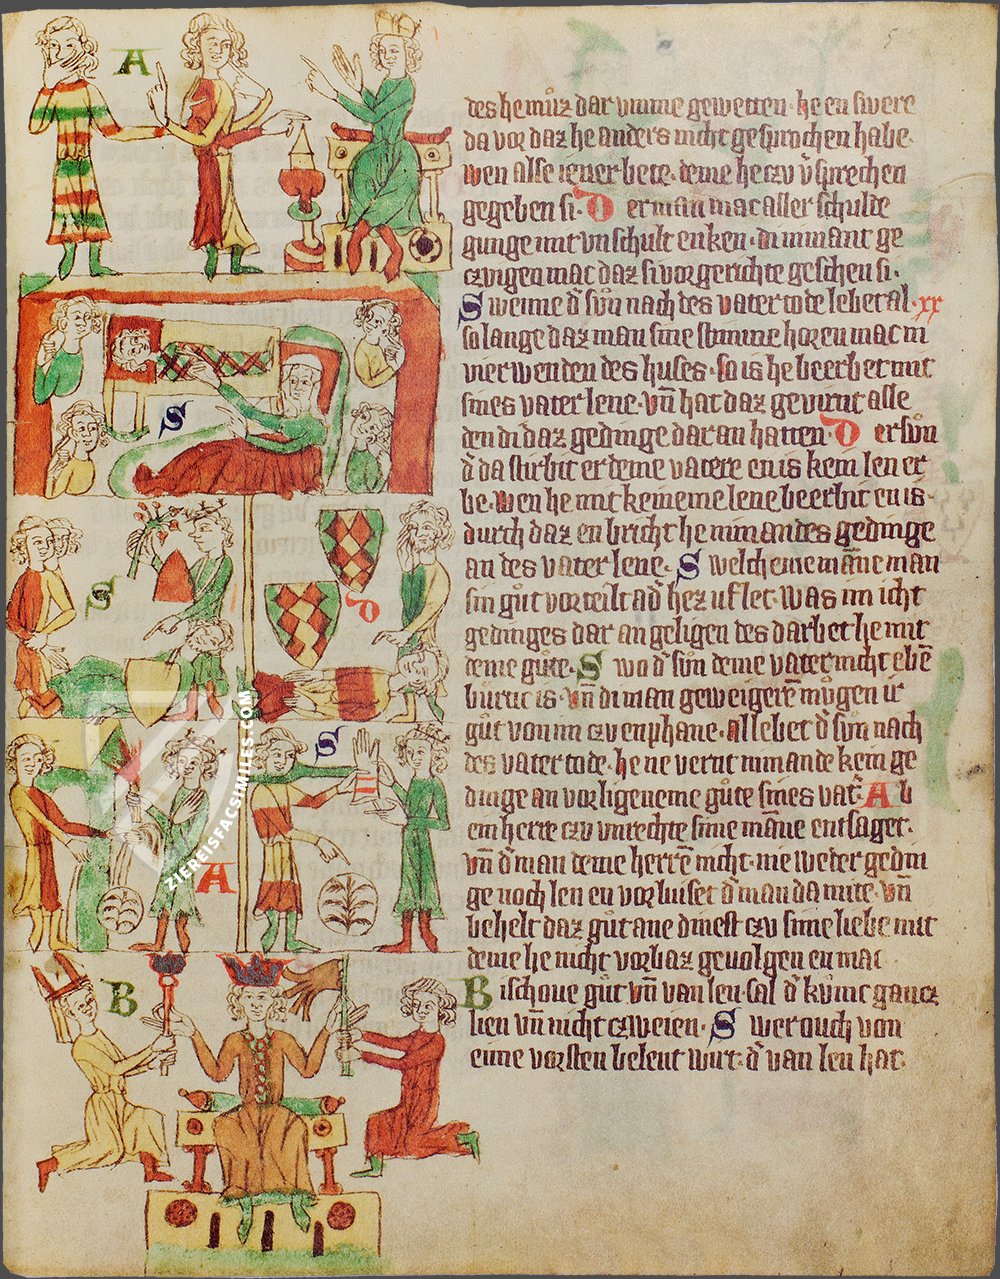 5
A
des he můz dar vmme gewetten· he en swere
da vor daz he anders nicht gesprochen habe·
wen alse iener bete· deme he czu v̓sprechen
gegeben si· D er man mac aller schulde
gunge mit vnschult enken· di im mant ge
czvigen mac daz si vor gerichte geschen si·
S wenne d̓ sůn nach des vater tode lebet al· xx
so lange daz man sine stimme horen mac in
vier wenden des huses· so is he beerbet mit
sines vater lene· vn̄ hat daz gevirnt alle
den di daz gedinge dar an hatten· D er sůn
d̓ da stirbit er deme vatere en is kem len er
be· wen he mit keineme lene beerbit en is·
durch daz en bricht he nimandes gedinge
an des vater lene· S welcheme māne man
sin gůt vorteilt ad̓ he z uflet· was im icht
gedinges dar an geligen des darbet he mit
deme gůte· S wo d̓ sůn deme vater nicht ebē
burtic is· vn̄ di man geweigerē můgen ir
gůt von im czv enphane· alle bet d̓ sůn nach
des vater tode· he ne vernt nimande kein ge
dinge an vorligeneme gůte sines vat̓· A b
ein herre czv vnrechte sime māne entsaget·
vn̄ d̓ man deme herrē nicht· nie weder gedin
ge noch len en vorluset d̓ man da mite· vn̄
behelt daz gůt ane dinest czv sime liebe mit
deme he nicht vorbaz gevolgen en mac
B ischove gůt vn̄ van len· sal d̓ kůnic gancz
lien vn̄ nicht czweien· S wer ouch von
eime vorsten belent wirt· d̓ van len hat·
S
S
D
S
A
B
ZIEREISFACSIMILES.COM